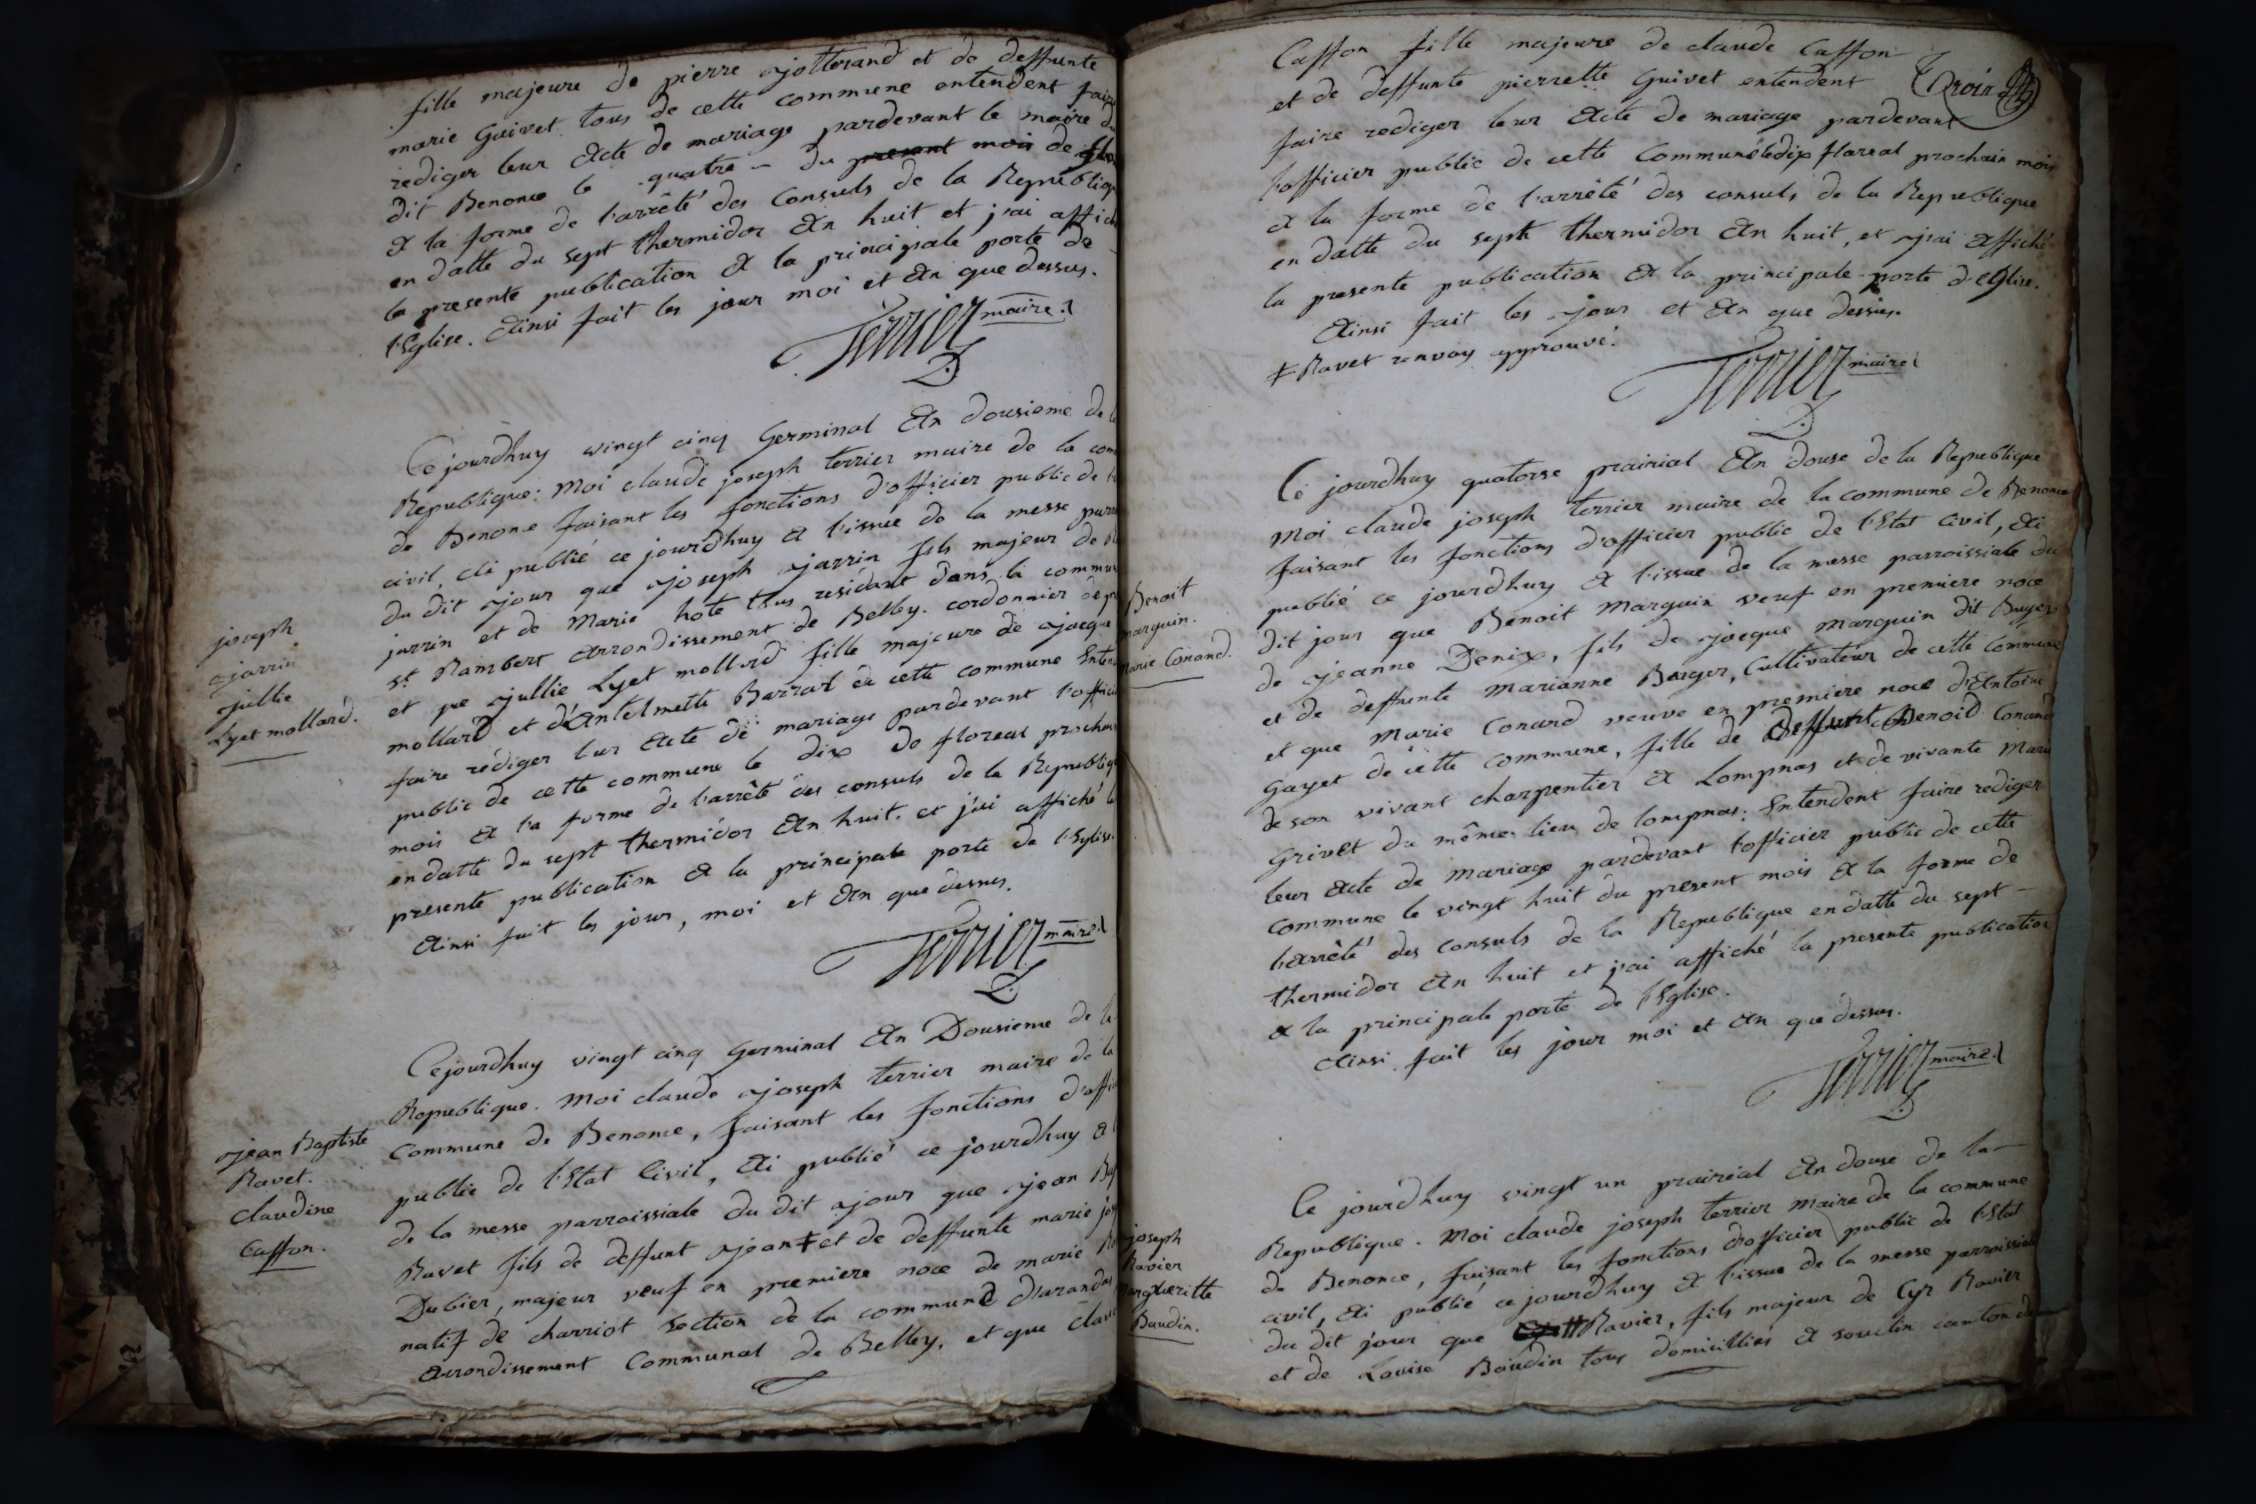 fille majeure de pierre jotterand et de deffunte
marie Guivet tous de cette commune entendent faire
rediger leur Acte de mariage pardevant le maire du
dit Benonce le quatre - du present mois de
A la forme de l'arrêté des Consuls de la Republique
en datte du sept thermidor An huit et j'ai affiché
la presente publication A la principale porte de
l'Eglise. Ainsi fait les jour moi et An que dessus.
Terrier maire
Ce jourdhuy vingt cinq Germinal An dousieme de la
Republique: Moi claude joseph terrier maire de la com
de Benonce faisant les fonctions d'officier public de
civil, Ai publié ce jourdhuy A l'issue de la messe parr
du dit jour que joseph jarrin fils majeur de
jarrin et de Marie hote tous residant dans la commun
joseph
jarrin
jullie
Lyet mollard.
st Rambert Arrondissement de Belley. cordonnier de
et que jullie Lyet mollard fille majeure de jacque
mollard et d'Antelmette Barrat de cette commune Enten
faire rédiger leur Acte de mariage pardevant l'offici
public de cette commune le dix de floreal prochain
mois A la forme de l'arrêté des consuls de la Republiq
en datte du sept thermidor An huit. et j'ai affiché la
presente publication A la principale porte de l'Eglise.
Ainsi fait les jour, moi et An que dessus.
Terrier maire
Cejourdhuy vingt cinq Germinal An Dousieme de la
Republique. Moi claude joseph terrier maire de la
commune de Benonce, faisant les fonctions d'offi
public de l'Etat Civil, Ai publié ce jourdhuy A l
de la messe parroissiale du dit jour que jean Bap
jean Baptiste
Ravet.
claudine
Caffon.
Ravet fils de deffunt jean ‡ et de deffunte marie jos
Dubier, majeur veuf en premiere noce de marie
natif de charriot section de la commune d'arandas
Arrondissement Communal de Belley, et que clau
Caffon fille majeure de claude Caffon
et de deffunte pierrette Guivet entendent
faire rediger leur Acte de mariage pardevant
l'officier public de cette Commune le dix floreal prochain mois
A la forme de l'arrêté des consuls de la Republique
en datte du sept thermidor An huit, et j'ai Affiché
la presente publication A la principale porte d'Eglise.
Ainsi fait les jour et An que dessus.
‡ Ravet renvoy approuvé.
Terrier maire
Ce jourdhuy quatorse prairial An douse de la Republique
Moi claude joseph terrier maire de la commune de Benonce
faisant les fonctions d'officier public de l'Etat Civil, Ai
publié ce jourdhuy A l'issue de la messe parroissiale du
dit jour que Benoit Marguin veuf en premiere noce
Benoit
marguin.
Marie Conand.
de jeanne Denix, fils de jacque marguin dit Buyet
et de deffunte Marianne Berger, Cultivateur de cette Commune
et que Marie Conand veuve en premiere noce d'Antoine
Gayet de cette commune, fille de deffunt Benoid Conand
de son vivant charpentier A Lompnas et de vivante Marie
Grivet du même lieu de lompnas; Entendent faire rediger
leur Acte de Mariage pardevant l'officier public de cette
commune le vingt huit du present mois A la forme de
l'arrêté des consuls de la Republique en datte du sept
thermidor An huit et j'ai affiché la presente publication
A la principale porte de l'Eglise.
Ainsi fait les jour moi et An que dessus.
Terrier maire
Ce jourdhuy vingt un prairial An douse de la
Republique. Moi claude joseph terrier Maire de la commune
de Benonce, faisant les fonctions d'officier public de l'Etat
civil, Ai publié ce jourdhuy A l'issue de la messe parroissiale
joseph
Ravier
Margueritte
Baudin.
du dit jour que Ravier, fils majeur de Cyr Ravier
et de Louise Baudin tous domiciliés A souclin canton de